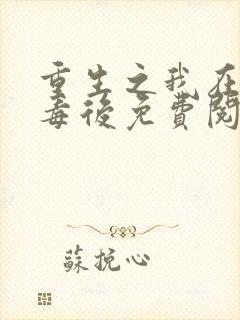 重生之我在
毒後免費閱
蘇挽心